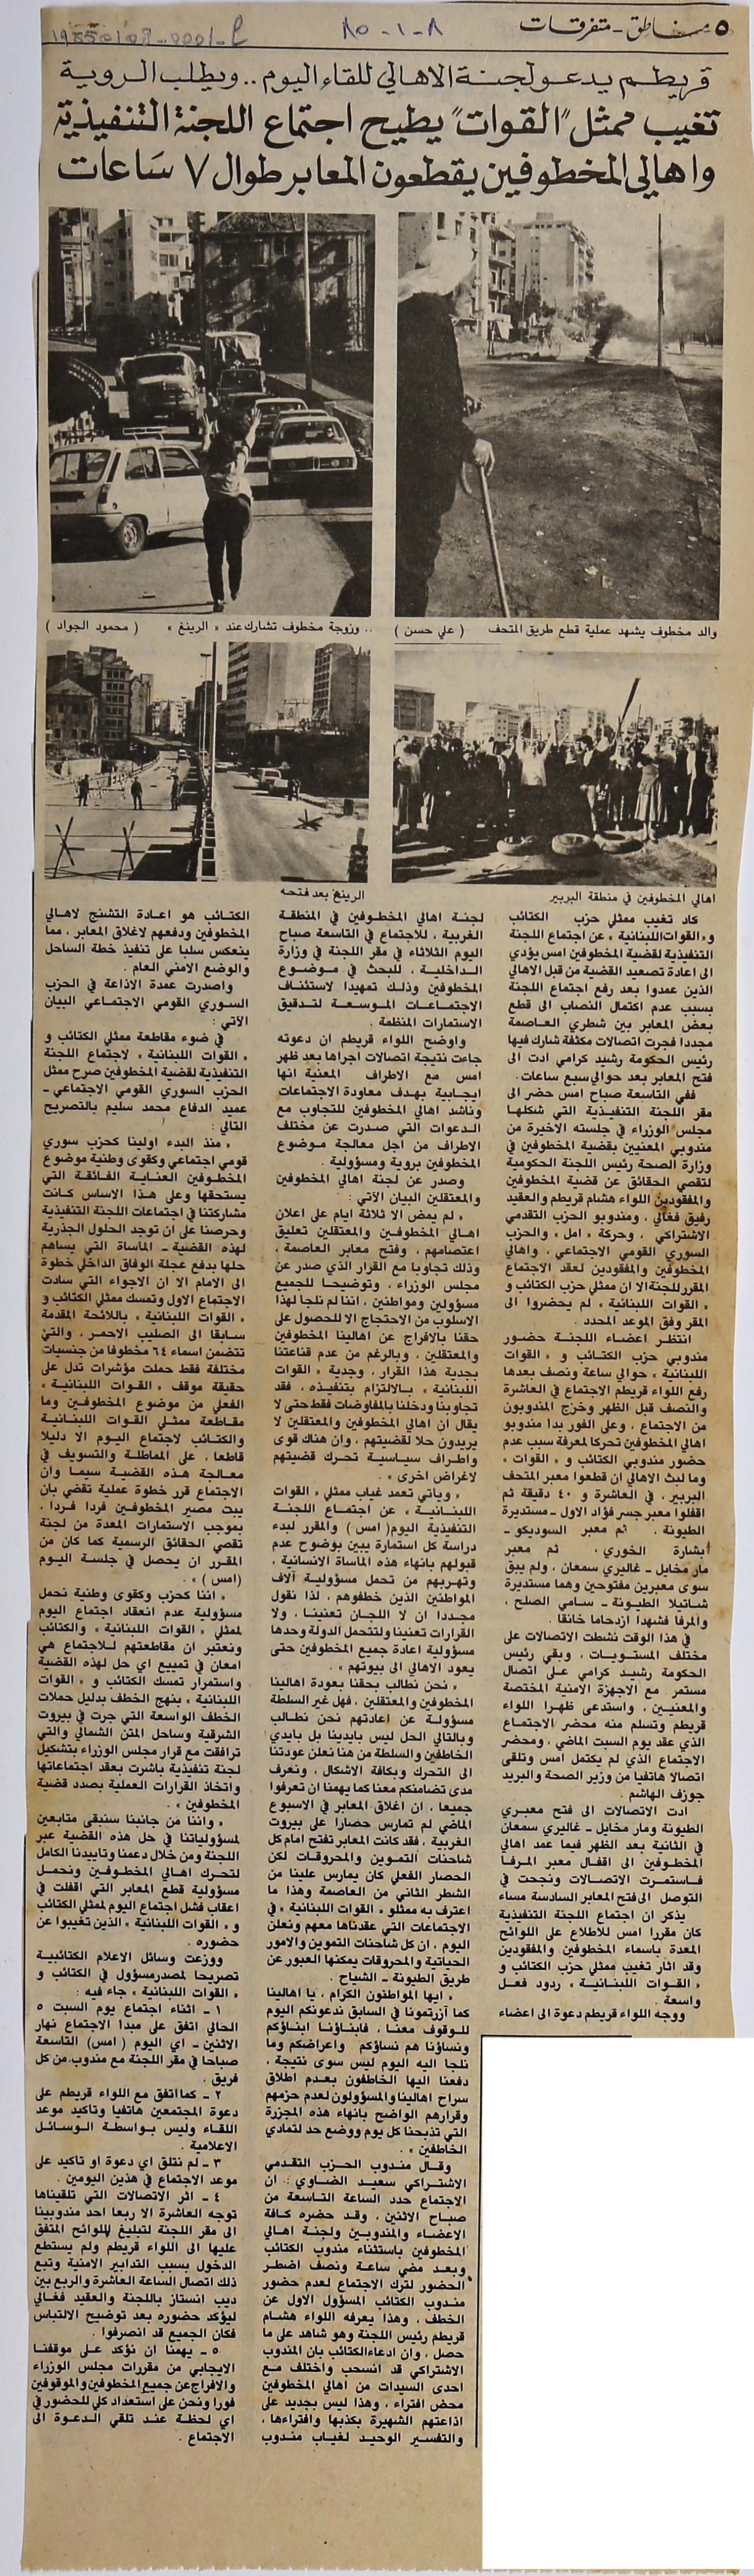 ٥ مناطق - متفرقات
٨-١-٨٥
19850108-0001-P
قريطم يدعو لجنة الاهالي للقاء اليوم .. ويطلب الروية
تغيب ممثل "القوات" يطيح اجتماع اللجنة التنفيذية
واهالي المخطوفين يقطعون المعابر طوال ٧ ساعات
والد مخطوف يشهد عملية قطع طريق المتحف ( علي حسن )
.. وزوجة مخطوف تشارك عند « الرينغ » ( محمود الجواد )
اهالي المخطوفين في منطقة البربير
الرينغ بعد فتحه
كاد تغيب ممثلي حزب الكتائب
و « القوات اللبنانية » عن اجتماع اللجنة
التنفيذية لقضية المخطوفين امس يؤدي
الى اعادة تصعيد القضية من قبل الاهالي
الذين عمدوا بعد رفع اجتماع اللجنة
بسبب عدم اكتمال النصاب الى قطع
بعض المعابر بين شطري العاصمة
مجددا فجرت اتصالات مكثفة شارك فيها
رئيس الحكومة رشيد كرامي ادت الى
فتح المعابر بعد حوالي سبع ساعات .
ففي التاسعة صباح امس حضر الى
مقر اللجنة التنفيذية التي شكلها
مجلس الوزراء في جلسته الاخيرة من
مندوبي المعنيين بقضية المخطوفين في
وزارة الصحة رئيس اللجنة الحكومية
لتقصي الحقائق عن قضية المخطوفين
والمفقودين اللواء هشام قريطم والعقيد
رفيق فغالي ، ومندوبو الحزب التقدمي
الاشتراكي ، وحركة « امل » والحزب
السوري القومي الاجتماعي ، واهالي
المخطوفين والمفقودين لعقد الاجتماع
المقرر للجنة الا ان ممثلي حزب الكتائب و
« القوات اللبنانية » لم يحضروا الى
المقر وفق الموعد المحدد .
انتظر اعضاء اللجنة حضور
مندوبي حزب الكتائب و « القوات
اللبنانية » حوالي ساعة ونصف بعدها
رفع اللواء قريطم الاجتماع في العاشرة
والنصف قبل الظهر وخرج المندوبون
من الاجتماع ، وعلى الفور بدا مندوبو
اهالي المخطوفين تحركا لمعرفة سبب عدم
حضور مندوبي الكتائب و « القوات »
وما لبث الاهالي ان قطعوا معبر المتحف
البربير ، في العاشرة و ٤٠ دقيقة ثم
اقفلوا معبر جسر فؤاد الاول - مستديرة
الطيونة . ثم معبر السوديكو -
بشارة الخوري ، ثم معبر
مار مخايل - غاليري سمعان ، ولم يبق
سوى معبرين مفتوحين وهما مستديرة
شاتيلا الطيونة - سامي الصلح ،
والمرفا فشهدا ازدحاما خانقا .
في هذا الوقت نشطت الاتصالات على
مختلف المستويات ، وبقي رئيس
الحكومة رشيد كرامي على اتصال
مستمر مع الاجهزة الامنية المختصة
والمعنيين ، واستدعى ظهرا اللواء
قريطم وتسلم منه محضر الاجتماع
الذي عقد يوم السبت الماضي ، ومحضر
الاجتماع الذي لم يكتمل امس وتلقى
اتصالا هاتفيا من وزير الصحة والبريد
جوزف الهاشم .
ادت الاتصالات الى فتح معبري
الطيونة ومار مخايل - غاليري سمعان
في الثانية بعد الظهر فيما عمد اهالي
المخطوفين الى اقفال معبر المرفا
فاستمرت الاتصالات ونجحت في
التوصل الى فتح المعابر السادسة مساء
يذكر ان اجتماع اللجنة التنفيذية
كان مقررا امس للاطلاع على اللوائح
المعدة باسماء المخطوفين والمفقودين
وقد اثار تغيب ممثلي حزب الكتائب و
« القوات اللبنانية » ردود فعل
واسعة .
ووجه اللواء قريطم دعوة الى اعضاء
لجنة اهالي المخطوفين في المنطقة
الغربية ، للاجتماع في التاسعة صباح
اليوم الثلاثاء في مقر اللجنة في وزارة
الداخلية ، للبحث في موضوع
المخطوفين وذلك تمهيدا لاستئناف
الاجتماعات الموسعة لتدقيق
الاستمارات المنظمة .
واوضح اللواء قريطم ان دعوته
جاءت نتيجة اتصالات اجراها بعد ظهر
امس مع الاطراف المعنية انها
ايجابية بهدف معاودة الاجتماعات
وناشد اهالي المخطوفين للتجاوب مع
الدعوات التي صدرت عن مختلف
الاطراف من اجل معالجة موضوع
المخطوفين بروية ومسؤولية .
وصدر عن لجنة اهالي المخطوفين
والمعتقلين البيان الآتي :
« لم يمض الا ثلاثة ايام على اعلان
اهالي المخطوفين والمعتقلين تعليق
اعتصامهم ، وفتح معابر العاصمة ،
وذلك تجاوبا مع القرار الذي صدر عن
مجلس الوزراء ، وتوضيحا للجميع
مسؤولين ومواطنين ، اننا لم نلجا لهذا
الاسلوب من الاحتجاج الا للحصول على
حقنا بالافراج عن اهالينا المخطوفين
والمعتقلين ، وبالرغم من عدم قناعتنا
بجدية هذا القرار ، وجدية « القوات
اللبنانية » بالالتزام بتنفيذه ، فقد
تجاوبنا ودخلنا بالمفاوضات فقط حتى لا
يقال ان اهالي المخطوفين والمعتقلين لا
يريدون حلا لقضيتهم ، وان هناك قوى
واطراف سياسية تحرك قضيتهم
لاغراض اخرى » .
« وياتي تعمد غياب ممثلي « القوات
اللبنانية » عن اجتماع اللجنة
التنفيذية اليوم ( امس ) والمقرر لبدء
دراسة كل استمارة يبين بوضوح عدم
قبولهم بانهاء هذه الماساة الانسانية ،
وتهربهم من تحمل مسؤولية آلاف
المواطنين الذين خطفوهم ، لذا نقول
مجددا ان لا اللجان تعنينا ، ولا
القرارات تعنينا ولتتحمل الدولة وحدها
مسؤولية اعادة جميع المخطوفين حتى
يعود الاهالي الى بيوتهم » .
« نحن نطالب بحقنا بعودة اهالينا
المخطوفين والمعتقلين ، فهل غير السلطة
مسؤولة عن اعادتهم نحن نطالب
وبالتالي الحل ليس بايدينا بل بايدي
الخاطفين والسلطة من هنا نعلن عودتنا
الى التحرك وبكافة الاشكال ، ونعرف
مدى تضامنكم معنا كما يهمنا ان تعرفوا
جميعا ، ان اغلاق المعابر في الاسبوع
الماضي لم تمارس حصارا على بيروت
الغربية ، فقد كانت المعابر تفتح امام كل
شاحنات التموين والمحروقات لكن
الحصار الفعلي كان يمارس علينا من
الشطر الثاني من العاصمة وهذا ما
اعترف به ممثلو « القوات اللبنانية » في
الاجتماعات التي عقدناها معهم ونعلن
اليوم ، ان كل شاحنات التموين والامور
الحياتية والمحروقات يمكنها العبور عن
طريق الطيونة - الشياح .
« ايها المواطنون الكرام ، يا اهالينا
كما آزرتمونا في السابق ندعوكم اليوم
للوقوف معنا ، فابناؤنا ابناؤكم
ونساؤنا هم نساؤكم واعراضكم وما
نلجا اليه اليوم ليس سوى نتيجة ،
دفعنا اليها الخاطفون بعدم اطلاق
سراح اهالينا والمسؤولون لعدم حزمهم
وقرارهم الواضح بانهاء هذه المجزرة
التي تذبحنا كل يوم ووضع حد لتمادي
الخاطفين » .
وقال مندوب الحزب التقدمي
الاشتراكي سعيد الضاوي : ان
الاجتماع حدد الساعة التاسعة من
صباح الاثنين ، وقد حضره كافة
الاعضاء والمندوبين ولجنة اهالي
المخطوفين باستثناء مندوب الكتائب
وبعد مضي ساعة ونصف اضطر
الحضور لترك الاجتماع لعدم حضور
مندوب الكتائب المسؤول الاول عن
الخطف ، وهذا يعرفه اللواء هشام
قريطم رئيس اللجنة وهو شاهد على ما
حصل ، وان ادعاء الكتائب بان المندوب
الاشتراكي قد انسحب واختلف مع
احدى السيدات من اهالي المخطوفين
محض افتراء ، وهذا ليس بجديد على
اذاعتهم الشهيرة بكذبها وافتراءها ،
والتفسير الوحيد لغياب مندوب
الكتائب هو اعادة التشنج لاهالي
المخطوفين ودفعهم لاغلاق المعابر ، مما
ينعكس سلبا على تنفيذ خطة الساحل
والوضع الامني العام .
واصدرت عمدة الاذاعة في الحزب
السوري القومي الاجتماعي البيان
الآتي :
في ضوء مقاطعة ممثلي الكتائب و
« القوات اللبنانية » لاجتماع اللجنة
التنفيذية لقضية المخطوفين صرح ممثل
الحزب السوري القومي الاجتماعي -
عميد الدفاع محمد سليم بالتصريح
التالي :
« منذ البدء اولينا كحزب سوري
قومي اجتماعي وكقوى وطنية موضوع
المخطوفين العناية الفائقة التي
يستحقها وعلى هذا الاساس كانت
مشاركتنا في اجتماعات اللجنة التنفيذية
وحرصنا على ان توجد الحلول الجذرية
لهذه القضية - الماساة التي يساهم
حلها بدفع عجلة الوفاق الداخلي خطوة
الى الامام الا ان الاجواء التي سادت
الاجتماع الاول وتمسك ممثلي الكتائب و
« القوات اللبنانية » باللائحة المقدمة
سابقا الى الصليب الاحمر ، والتي
تتضمن اسماء ٦٤ مخطوفا من جنسيات
مختلفة فقط حملت مؤشرات تدل على
حقيقة موقف « القوات اللبنانية »
الفعلي من موضوع المخطوفين وما
مقاطعة ممثلي القوات اللبنانية
والكتائب لاجتماع اليوم الا دليلا
قاطعا ، على المماطلة والتسويف في
معالجة هذه القضية سيما وان
الاجتماع قرر خطوة عملية تقضي بان
يبت مصير المخطوفين فردا فردا ،
بموجب الاستمارات المعدة من لجنة
تقصي الحقائق الرسمية كما كان من
المقرر ان يحصل في جلسة اليوم
( امس ) » .
« اننا كحزب وكقوى وطنية نحمل
مسؤولية عدم انعقاد اجتماع اليوم
لممثلي « القوات اللبنانية » والكتائب
ونعتبر ان مقاطعتهم للاجتماع هي
امعان في تمييع اي حل لهذه القضية
واستمرار تمسك الكتائب و « القوات
اللبنانية » بنهج الخطف بدليل حملات
الخطف الواسعة التي جرت في بيروت
الشرقية وساحل المتن الشمالي والتي
ترافقت مع قرار مجلس الوزراء بتشكيل
لجنة تنفيذية باشرت بعقد اجتماعاتها
واتخاذ القرارات العملية بصدد قضية
المخطوفين » .
« واننا من جانبنا سنبقى متابعين
لمسؤولياتنا في حل هذه القضية عبر
اللجنة ومن خلال دعمنا وتاييدنا الكامل
لتحرك اهالي المخطوفين ونحمل
مسؤولية قطع المعابر التي اقفلت في
اعقاب فشل اجتماع اليوم لممثلي الكتائب
و « القوات اللبنانية » الذين تغيبوا عن
حضوره .
ووزعت وسائل الاعلام الكتائبية
تصريحا لمصدر مسؤول في الكتائب و
« القوات اللبنانية » جاء فيه :
١ - اثناء اجتماع يوم السبت ٥
الحالي اتفق على مبدا الاجتماع نهار
الاثنين - اي اليوم ( امس ) التاسعة
صباحا في مقر اللجنة مع مندوب من كل
فريق .
٢ - كما اتفق مع اللواء قريطم على
دعوة المجتمعين هاتفيا وتاكيد موعد
اللقاء وليس بواسطة الوسائل
الاعلامية .
٣ - لم نتلق اي دعوة او تاكيد على
موعد الاجتماع في هذين اليومين .
٤ - اثر الاتصالات التي تلقيناها
توجه العاشرة الا ربعا احد مندوبينا
الى مقر اللجنة لتبليغ اللوائح المتفق
عليها الى اللواء قريطم ولم يستطع
الدخول بسبب التدابير الامنية وتبع
ذلك اتصال الساعة العاشرة والربع بين
ديب انستاز باللجنة والعقيد فغالي
ليؤكد حضوره بعد توضيح الالتباس
فكان الجميع قد انصرفوا .
٥ - يهمنا ان نؤكد على موقفنا
الايجابي من مقررات مجلس الوزراء
والافراج عن جميع المخطوفين والموقوفين
فورا ونحن على استعداد كلي للحضور في
اي لحظة عند تلقي الدعوة الى
الاجتماع .